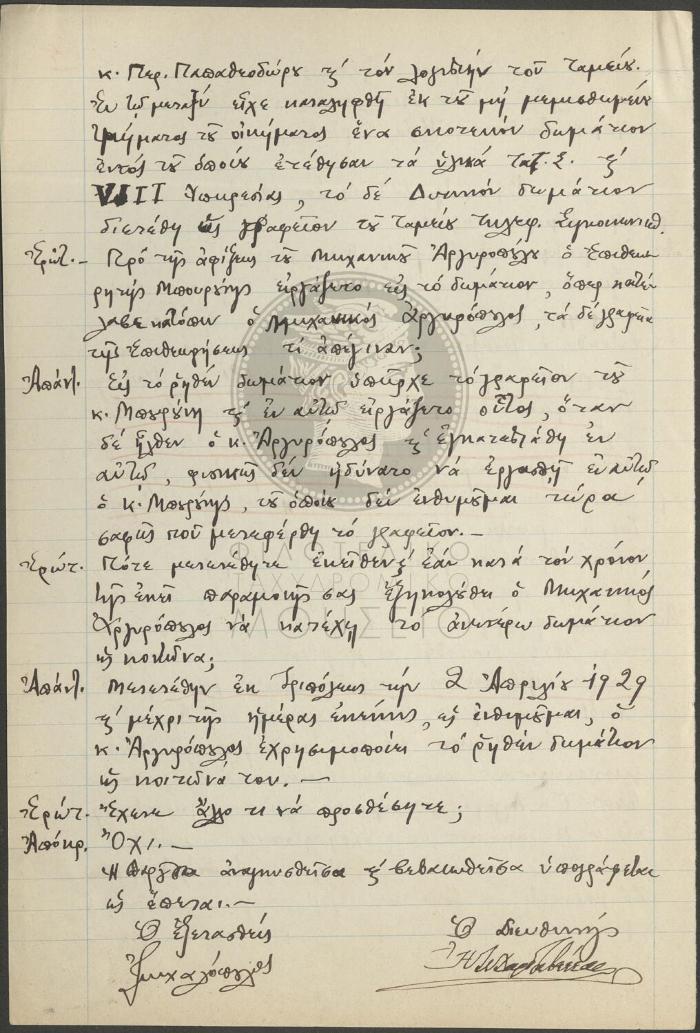 κ. Περ. Παπαθεοδώρου κ' τόν λογιστήν τοῦ Ταμείου.
Ἐν τῷ μεταξύ εἶχε καταληφθῆ ἐκ τοῦ μή μεμισθωμένου
τμήματος τοῦ οἰκήματος ἕνα σκοτεινόν δωμάτιον
ἐντός τοῦ ὁποίου ἐτέθησαν τά ὑλικά Τατ. Σ. κ'
VIII Ὑπηρεσίας, τό δέ Δυτικόν δωμάτιον
διετέθη ὡς γραφεῖον τοῦ ταμείου τηλεφ. Συγκοινωνιῶν.
Ἐρώτ. - Πρό τῆς ἀφίξεως τοῦ Μηχανικοῦ Ἀργυροπούλου ὁ Ἐπιθεω-
ρητής Μπουρνῆς εἰργάζετο εἰς τό δωμάτιον, ὅπερ κατέ-
λαβε κατόπιν ὁ Μηχανικός Ἀργυρόπουλος, τά δέ γραφεῖα
τῆς Ἐπιθεωρήσεως τί ἀπέγιναν;
Ἀπάντ. Εἰς τό ῥηθέν δωμάτιον ὑπῆρχε τό γραφεῖον τοῦ
κ. Μπουρνῆ κ' ἐν αὐτῷ εἰργάζετο οὗτος, ὅταν
δέ ἦλθεν ὁ κ. Ἀργυρόπουλος κ' ἐγκατεστάθη ἐν
αὐτῷ, φυσικῶς δέν ἠδύνατο νά ἐργασθῇ ἐν αὐτῷ
ὁ κ. Μπουρνῆς, τοῦ ὁποίου δέν ἐνθυμοῦμαι τώρα
σαφῶς ποῦ μετεφέρθη τό γραφεῖον. -
ΦΙΛΟΤΕΛΙΚΟ
ΤΑΧΥΔΡΟΜΙΚΟ
ΜΟΥΣΕΙΟ
Ἐρώτ. Πότε μετετέθητε ἐκεῖθεν κ' ἐάν κατά τόν χρόνον
τῆς ἐκεῖ παραμονῆς σας ἐξηκολούθει ὁ Μηχανικός
Ἀργυρόπουλος νά κατέχῃ τό ἀνωτέρω δωμάτιον
ὡς κοιτῶνα;
Ἀπάντ. Μετετέθην ἐκ Τριπόλεως τήν 2 Ἀπριλίου 1929
κ' μέχρι τῆς ἡμέρας ἐκείνης, ὡς ἐνθυμοῦμαι, ὁ
κ. Ἀργυρόπουλος ἐχρησιμοποίει τό ῥηθέν δωμάτιον
ὡς κοιτῶνά του. -
Ἐρώτ. Ἔχετε ἄλλο τι νά προσθέσητε;
Ἀπόκρ. Ὄχι. -
Ἡ παροῦσα ἀναγνωσθεῖσα κ' βεβαιωθεῖσα ὑπογράφεται
ὡς ἕπεται. -
Ὁ Ἐξετασθείς Ὁ Διευθυντής